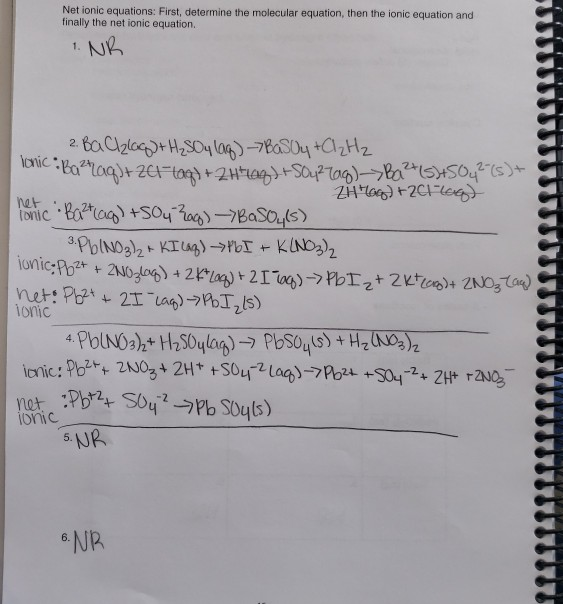 Net ionic equations: First, determine the molecular equation, then the ionic equation and
finally the net ionic equation.
1. NR
2. BaCl2(aq) + H2SO4(aq) → BaSO4 + Cl2H2
ionic: Ba2+(aq) + 2Cl-(aq) + 2H+(aq) + SO4 2-(aq) → Ba2+(s) + SO4 2-(s) +
2H+(aq) + 2Cl-(aq)
net ionic: Ba2+(aq) + SO4 -2(aq) → BaSO4(s)
3. Pb(NO3)2 + KI(aq) → PbI + K(NO3)2
ionic: Pb2+ + 2NO3(aq) + 2K+(aq) + 2I-(aq) → PbI2 + 2K+(aq) + 2NO3-(aq)
net ionic: Pb2+ + 2I-(aq) → PbI2(s)
4. Pb(NO3)2 + H2SO4(aq) → PbSO4(s) + H2(NO3)2
ionic: Pb2+ + 2NO3 + 2H+ + SO4 -2(aq) → Pb2+ + SO4 -2 + 2H+ + 2NO3-
net ionic: Pb+2 + SO4 -2 → PbSO4(s)
5. NR
6. NR